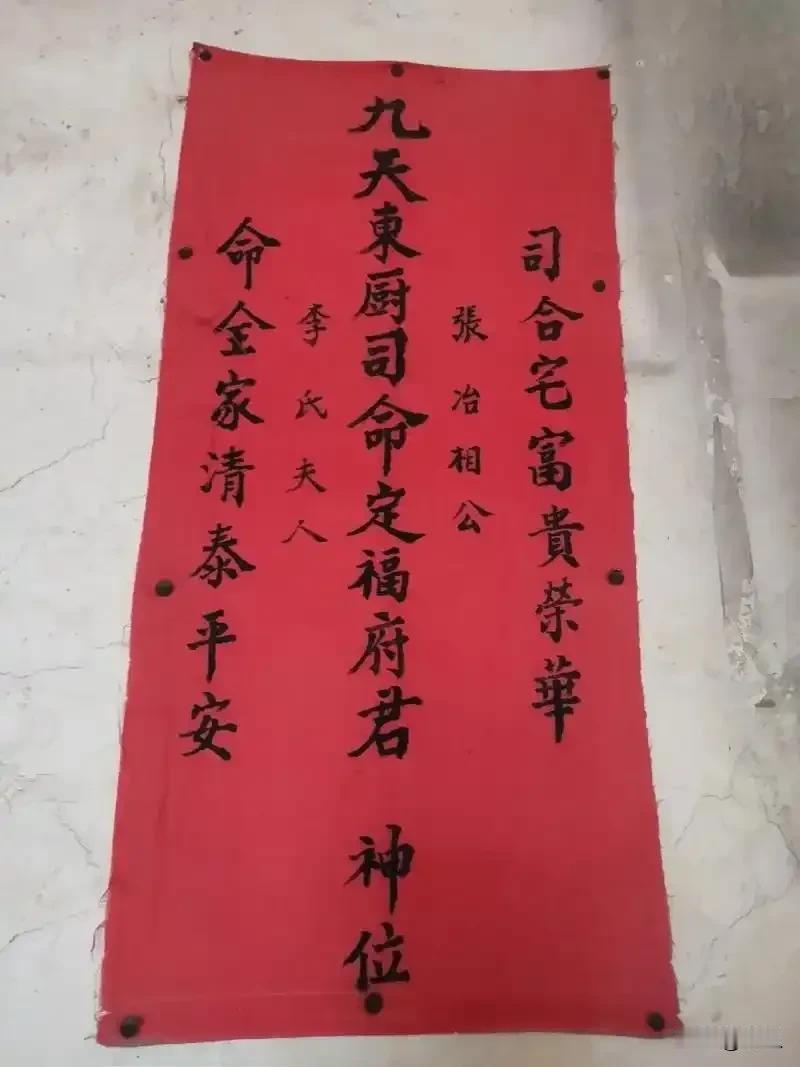 司合宅富貴榮華
張冶相公
九天東厨司命定福府君 神位
李氏夫人
命全家清泰平安